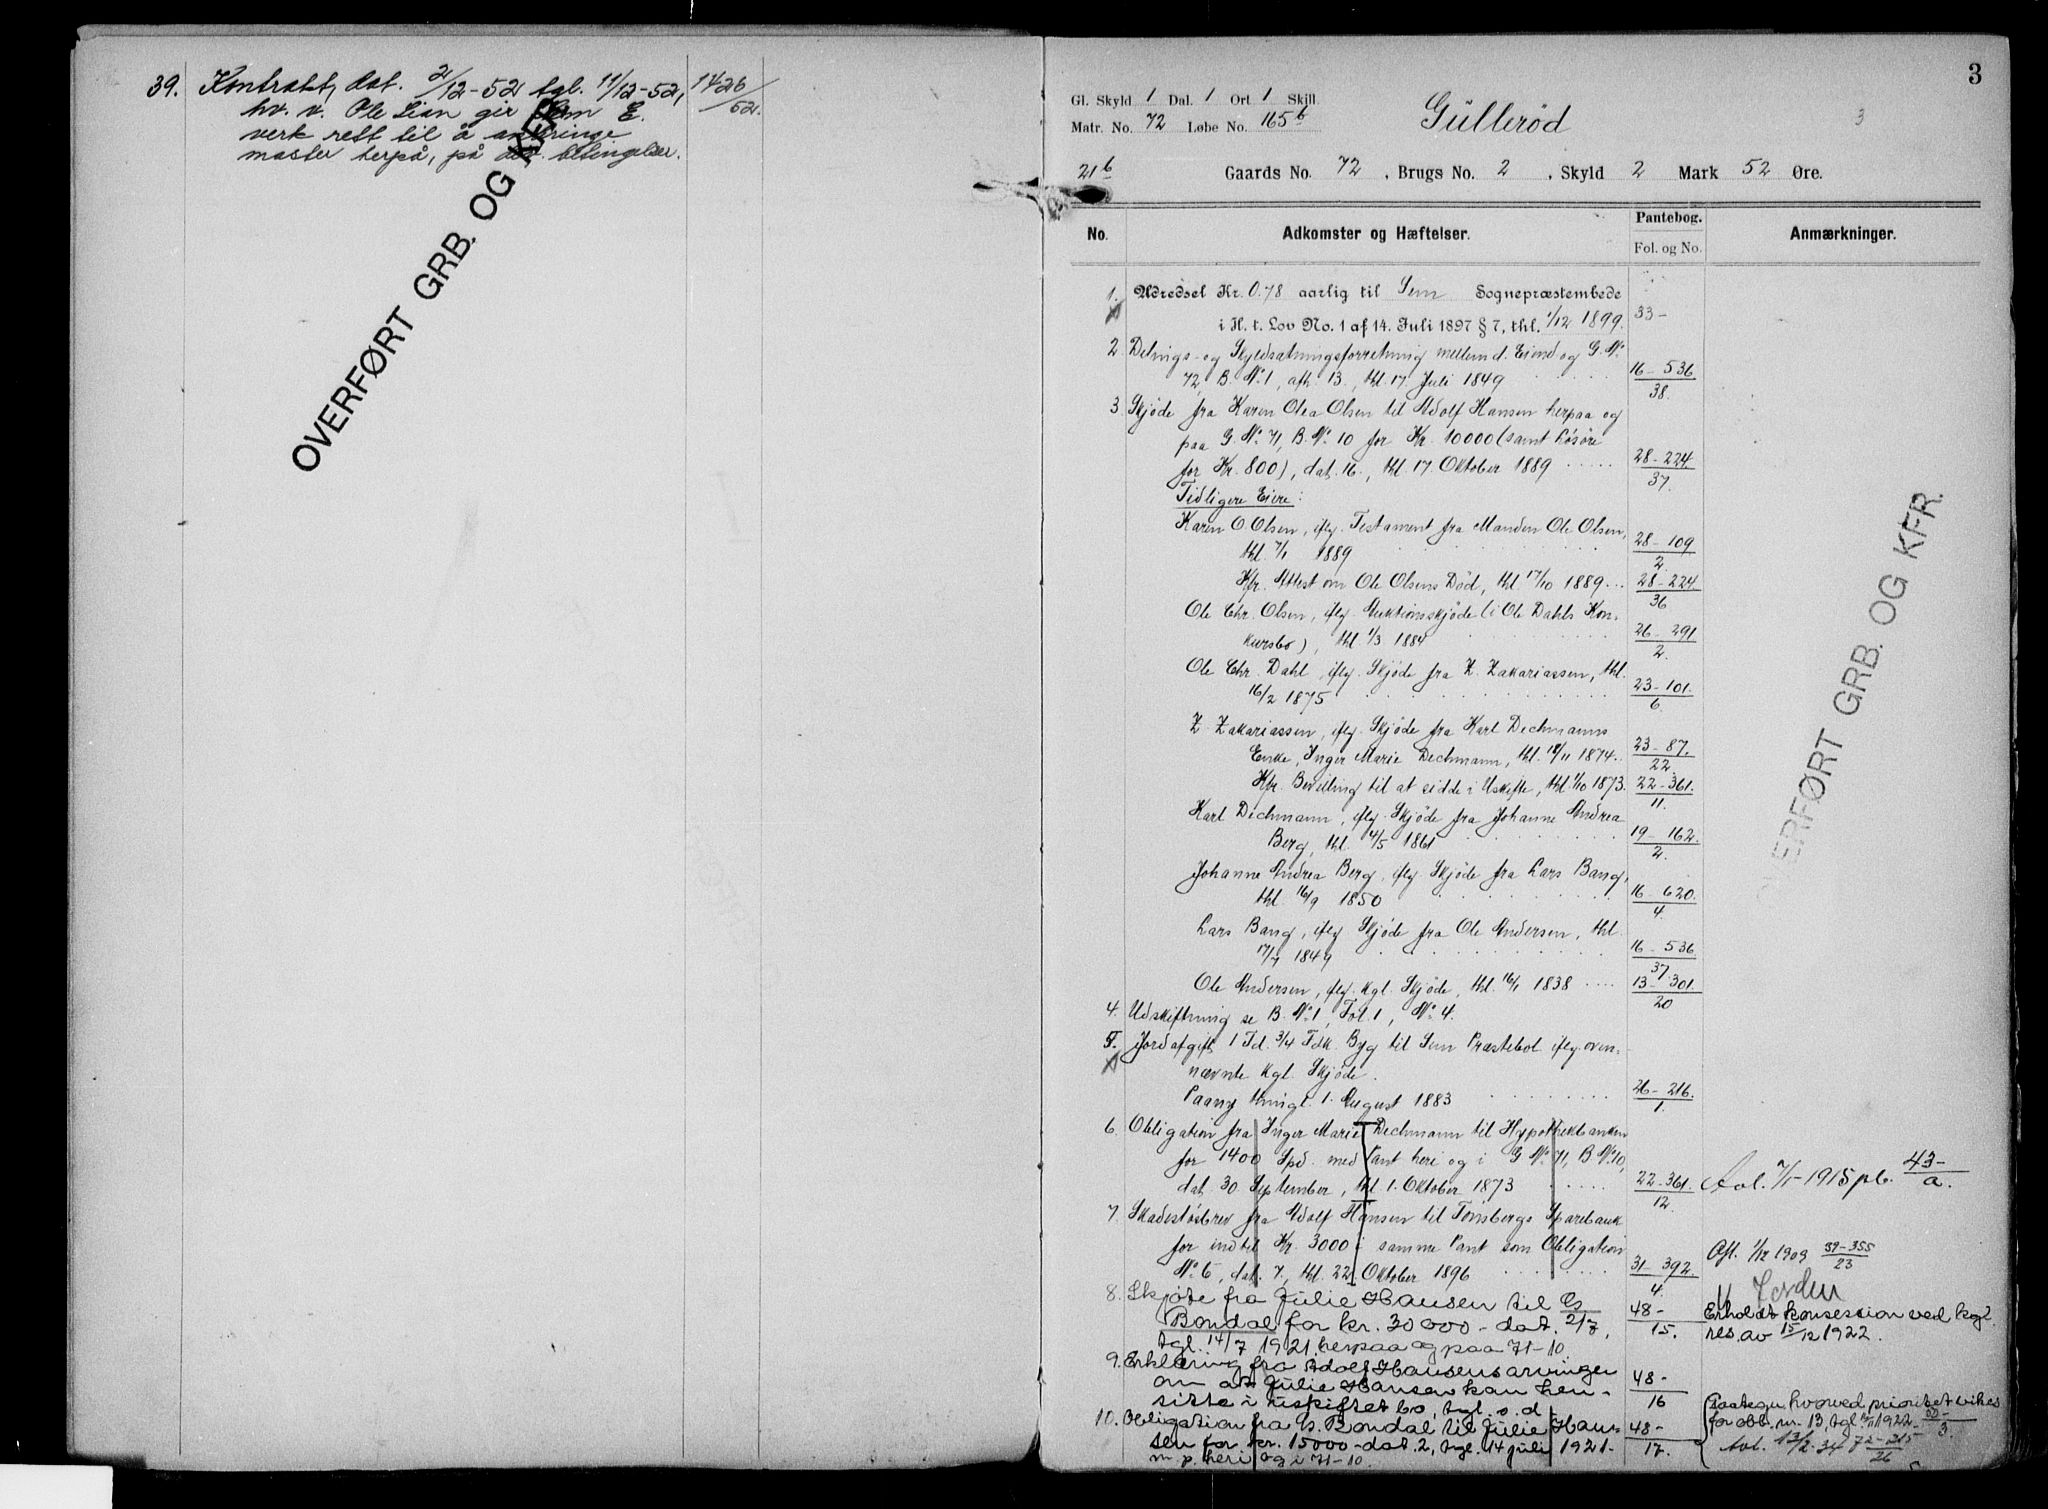 39. Kontrakt, dat. 2/12-52 tgl. 11/12-52, 1426/52.
hv. v. Ole Lian gir Sem E.
verk rett til å anbringe
master herpå, på det. betingelser.
OVERFØRT GRB. OG KFR
3
Gl. Skyld 1 Dal. 1 Ort 1 Skill.
Matr. No. 72 Løbe No. 165b
Gullerød
3
21b Gaards No. 72, Brugs No. 2, Skyld 2 Mark 52 Øre.
No. Adkomster og Hæftelser. Pantebog. Fol. og No. Anmærkninger.
1. Udredsel Kr. 0.78 aarlig til Sem Sognepræstembede
i H. t. Lov No. 1 af 14. Juli 1897 § 7, thl. 1/12 1899. 33-
2 Delings- og Skyldsætningsforretning mellem d. Eiend og G. No.
72, B. No. 1, afh. 13., thl. 17. Juli 1849 16-536/38.
3 Skjøde fra Karen Olea Olsen til Adolf Hansen herpaa og
paa G. No. 71, B. No. 10 for Kr. 10000 (samt Løsøre
for Kr. 800), dat. 16., thl. 17. Oktober 1889 28-224/37.
Tidligere Eiere:
Karen O Olsen, iflg. Testament fra Manden Ole Olsen,
thl. 7/1 1889 28-109/2.
Kfr. Attest om Ole Olsens Død, thl 17/10 1889 28-224/36
Ole Chr. Olsen, iflg. Auktionsskjøde (i Ole Dahls Kon-
kursbo), thl. 1/3 1884 26-291/2.
Ole Chr. Dahl, iflg. Skjøde fra Z. Zakariassen, thl.
16/2 1875 23-101./6.
Z. Zakariassen, iflg. Skjøde fra Karl Dechmanns
Enke, Inger Marie Dechmann, thl. 18/11 1874 23-87./22.
Kfr. Bevilling til at sidde i Uskifte, thl. 1/10 1873. 22-361./11.
Karl Dechmann, iflg. Skjøde fra Johanne Andrea
Berg, thl. 14/5 1861 19-162./2.
Johanne Andrea Berg, iflg Skjøde fra Lars Bang,
thl. 16/9 1850 16-620./4.
Lars Bang, iflg Skjøde fra Ole Andersen, thl.
17/7 1849 16-536/37.
Ole Andersen, iflg. kgl. Skjøde, thl. 16/1 1838 13-301./20
4. Udskiftning se B. No. 1, Fol. 1, No. 4.
5. Jordafgift, 1 Td. 3/4 Fdk. Byg til Sem Præstebol iflg. oven-
nævnte kgl. Skjøde.
Paany thingl. 1. August 1883 26-216./1.
6. Obligation fra Inger Marie Dechmann til Hypothekbanken
for 1400 Spd. med Pant heri og i G No. 71, B No. 10,
dat. 30 September, thl 1. Oktober 1873 22-361./12. Avl. 7/1-1915 pb. 43-/a.
7. Skadesløsbrev fra Adolf Hansen til Tønsbergs Sparebank
for indtil Kr. 3000 i samme Pant som Obligation
No. 6, dat. 7., thl. 22. Oktober 1896 31-392./4. Afl. 1/12 1909 39-355/23
8. Skjøte fra Julie Hansen til Gs
Bondal for kr. 30000- dat. 2/7,
tgl. 14/7 1921. herpaa og paa 71-10 48-/15. Erholdt konsession ved kgl.
res. av 15/12 1922.
9. Erklæring fra Adolf Hansens arvinger
om at Julie Hansen kan hen-
sitte i uskiftet bo, tgl. s. d. 48-/16
10. Obligation fra Gs. Bondal til Julie Han-
sen for kr. 15000- dat. 2, tgl. 14 juli 1921-
m. p. heri og i 71-10. 48-/17.
Paategn. hvorved prioritet vikes
for obl. nr. 13, tgl 1922
Avl. 13/2-34 72-315/26
OVERFØRT GRB. OG KFR.